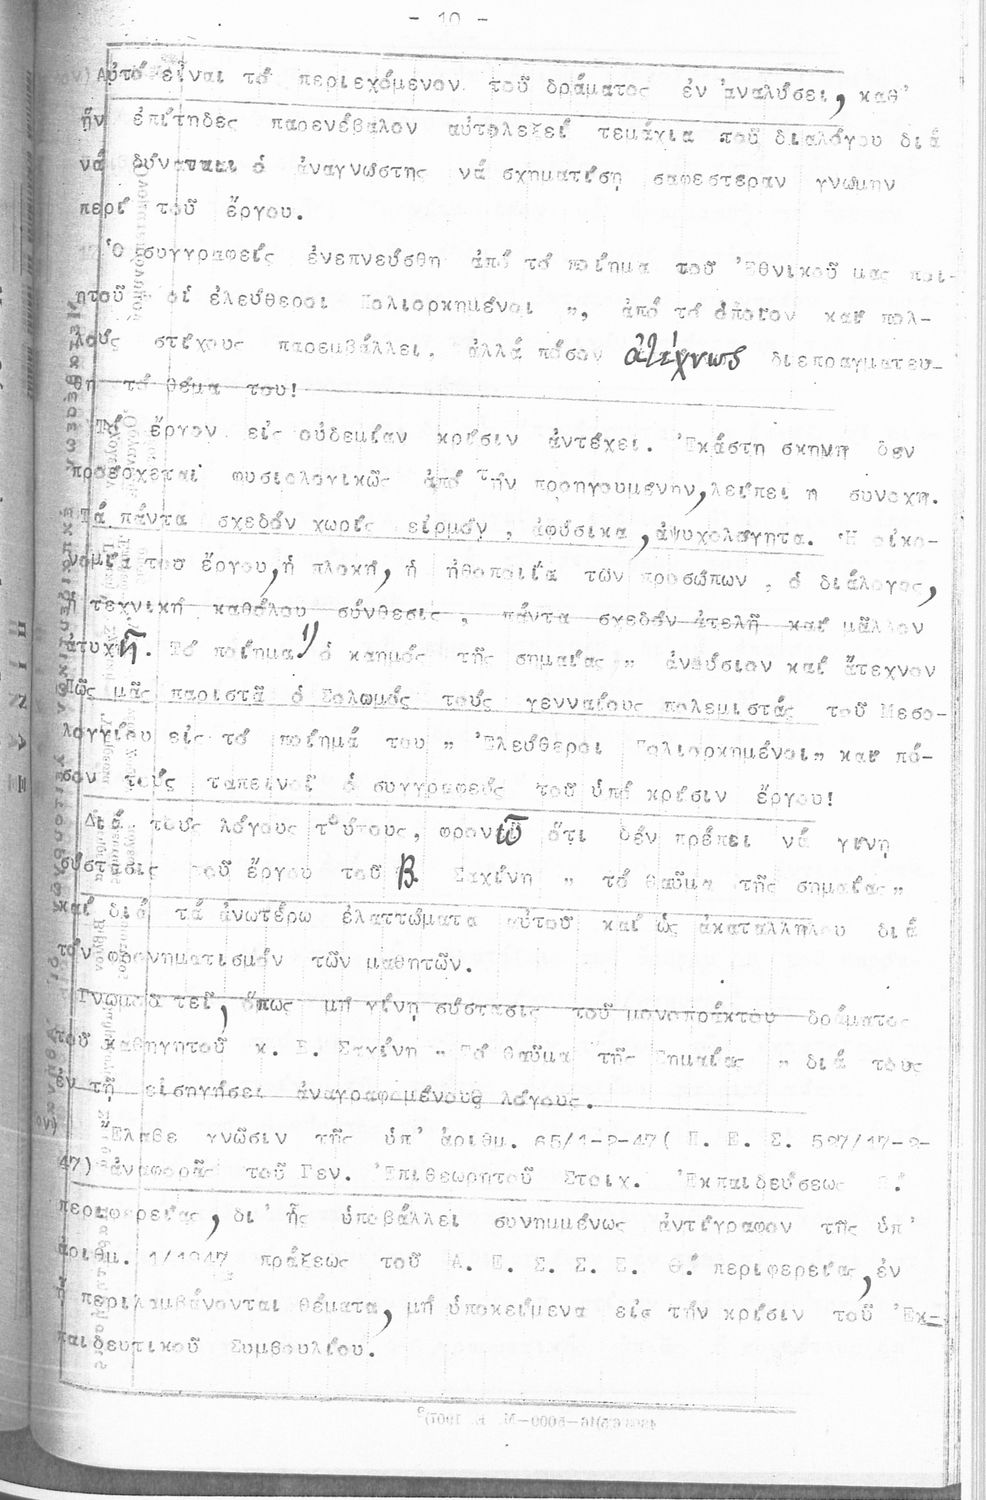 - 10 -
Αὐτό εἶναι τό περιεχόμενον τοῦ δράματος ἐν ἀναλύσει, καθ'
ἥν ἐπίτηδες παρενέβαλον αὐτολεξεί τεμάχια τοῦ διαλόγου διά
νά δύναται ὁ ἀναγνώστης νά σχηματίσῃ σαφεστέραν γνώμην
περί τοῦ ἔργου.
Ὁ συγγραφεύς ἐνεπνεύσθη ἀπό τό ποίημα τοῦ Ἐθνικοῦ μας ποι-
ητοῦ „ οἱ ἐλεύθεροι Πολιορκημένοι „, ἀπό τό ὁποῖον καί πολ-
λούς στίχους παρεμβάλλει, ἀλλά πόσον ἀτέχνως διεπραγματεύ-
θη τό θέμα του!
Τό ἔργον εἰς οὐδεμίαν κρίσιν ἀντέχει. Ἑκάστη σκηνή δέν
προέρχεται φυσιολογικῶς ἀπό τήν προηγουμένην, λείπει ἡ συνοχή.
Τά πάντα σχεδόν χωρίς εἱρμόν, ἀφύσικα, ἀψυχολόγητα. Ἡ οἰκο-
νομία τοῦ ἔργου, ἡ πλοκή, ἡ ἠθοποιΐα τῶν προσώπων, ὁ διάλογος,
ἡ τεχνική καθόλου σύνθεσις, πάντα σχεδόν ἀτελῆ καί μᾶλλον
ἀτυχῆ. Τό ποίημα „ ὁ καημός τῆς σημαίας „ ἀνούσιον καί ἄτεχνον
Πῶς μᾶς παριστᾶ ὁ Σολωμός τούς γενναίους πολεμιστάς τοῦ Μεσο-
λογγίου εἰς τό ποίημά του „ Ἐλεύθεροι Πολιορκημένοι„ καί πό-
σον τούς ταπεινοῖ ὁ συγγραφεύς τοῦ ὑπό κρίσιν ἔργου!
Διά τούς λόγους τούτους, φρονῶ ὅτι δέν πρέπει νά γίνῃ
σύστασις τοῦ ἔργου τοῦ Β. Σαχίνη „ τό θαῦμα τῆς σημαίας„
καί διά τά ἀνωτέρω ἐλαττώματα αὐτοῦ καί ὡς ἀκαταλλήλου διά
τόν φρονηματισμόν τῶν μαθητῶν.
Γνωμοδοτεῖ, ὅπως μή γίνῃ σύστασις τοῦ μονοπράκτου δράματος
τοῦ καθηγητοῦ κ. Β. Σαχίνη „ Τό Θαῦμα τῆς Σημαίας „ διά τούς
ἐν τῇ εἰσηγήσει ἀναγραφομένους λόγους.
Ἔλαβε γνῶσιν τῆς ὑπ' ἀριθμ. 65/1-2-47( Π. Ε. Σ. 527/17-2-
47) ἀναφορᾶς τοῦ Γεν. Ἐπιθεωρητοῦ Στοιχ. Ἐκπαιδεύσεως
περιφερείας, δι' ἧς ὑποβάλλει συνημμένως ἀντίγραφον τῆς ὑπ'
ἀριθμ. 1/1947 πράξεως τοῦ Α. Ε. Σ. Σ. Ε. Θ.΄ περιφερείας, ἐν
ᾗ περιλαμβάνονται θέματα, μή ὑποκείμενα εἰς τήν κρίσιν τοῦ Ἐκ-
παιδευτικοῦ Συμβουλίου.